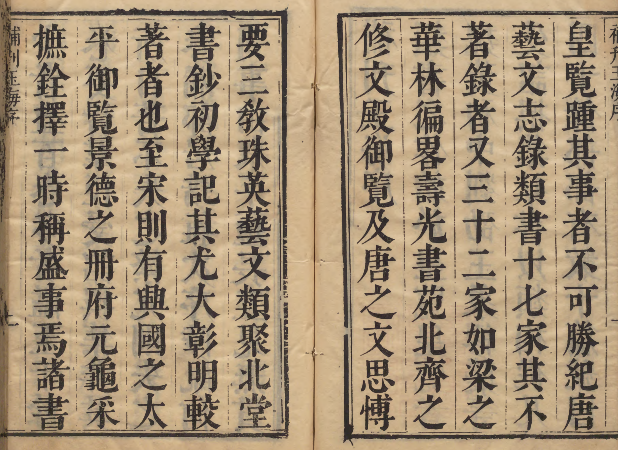 皇覽踵其事者不可勝紀唐
藝文志錄類書十七家其不
著錄者又三十二家如梁之
華林徧畧壽光書苑北齊之
修文殿御覽及唐之文思愽
要三敎珠英藝文類聚北堂
書鈔初學記其尤大彰明較
著者也至宋則有興國之太
平御覽景德之冊府元龜采
摭銓擇一時稱盛事焉諸書